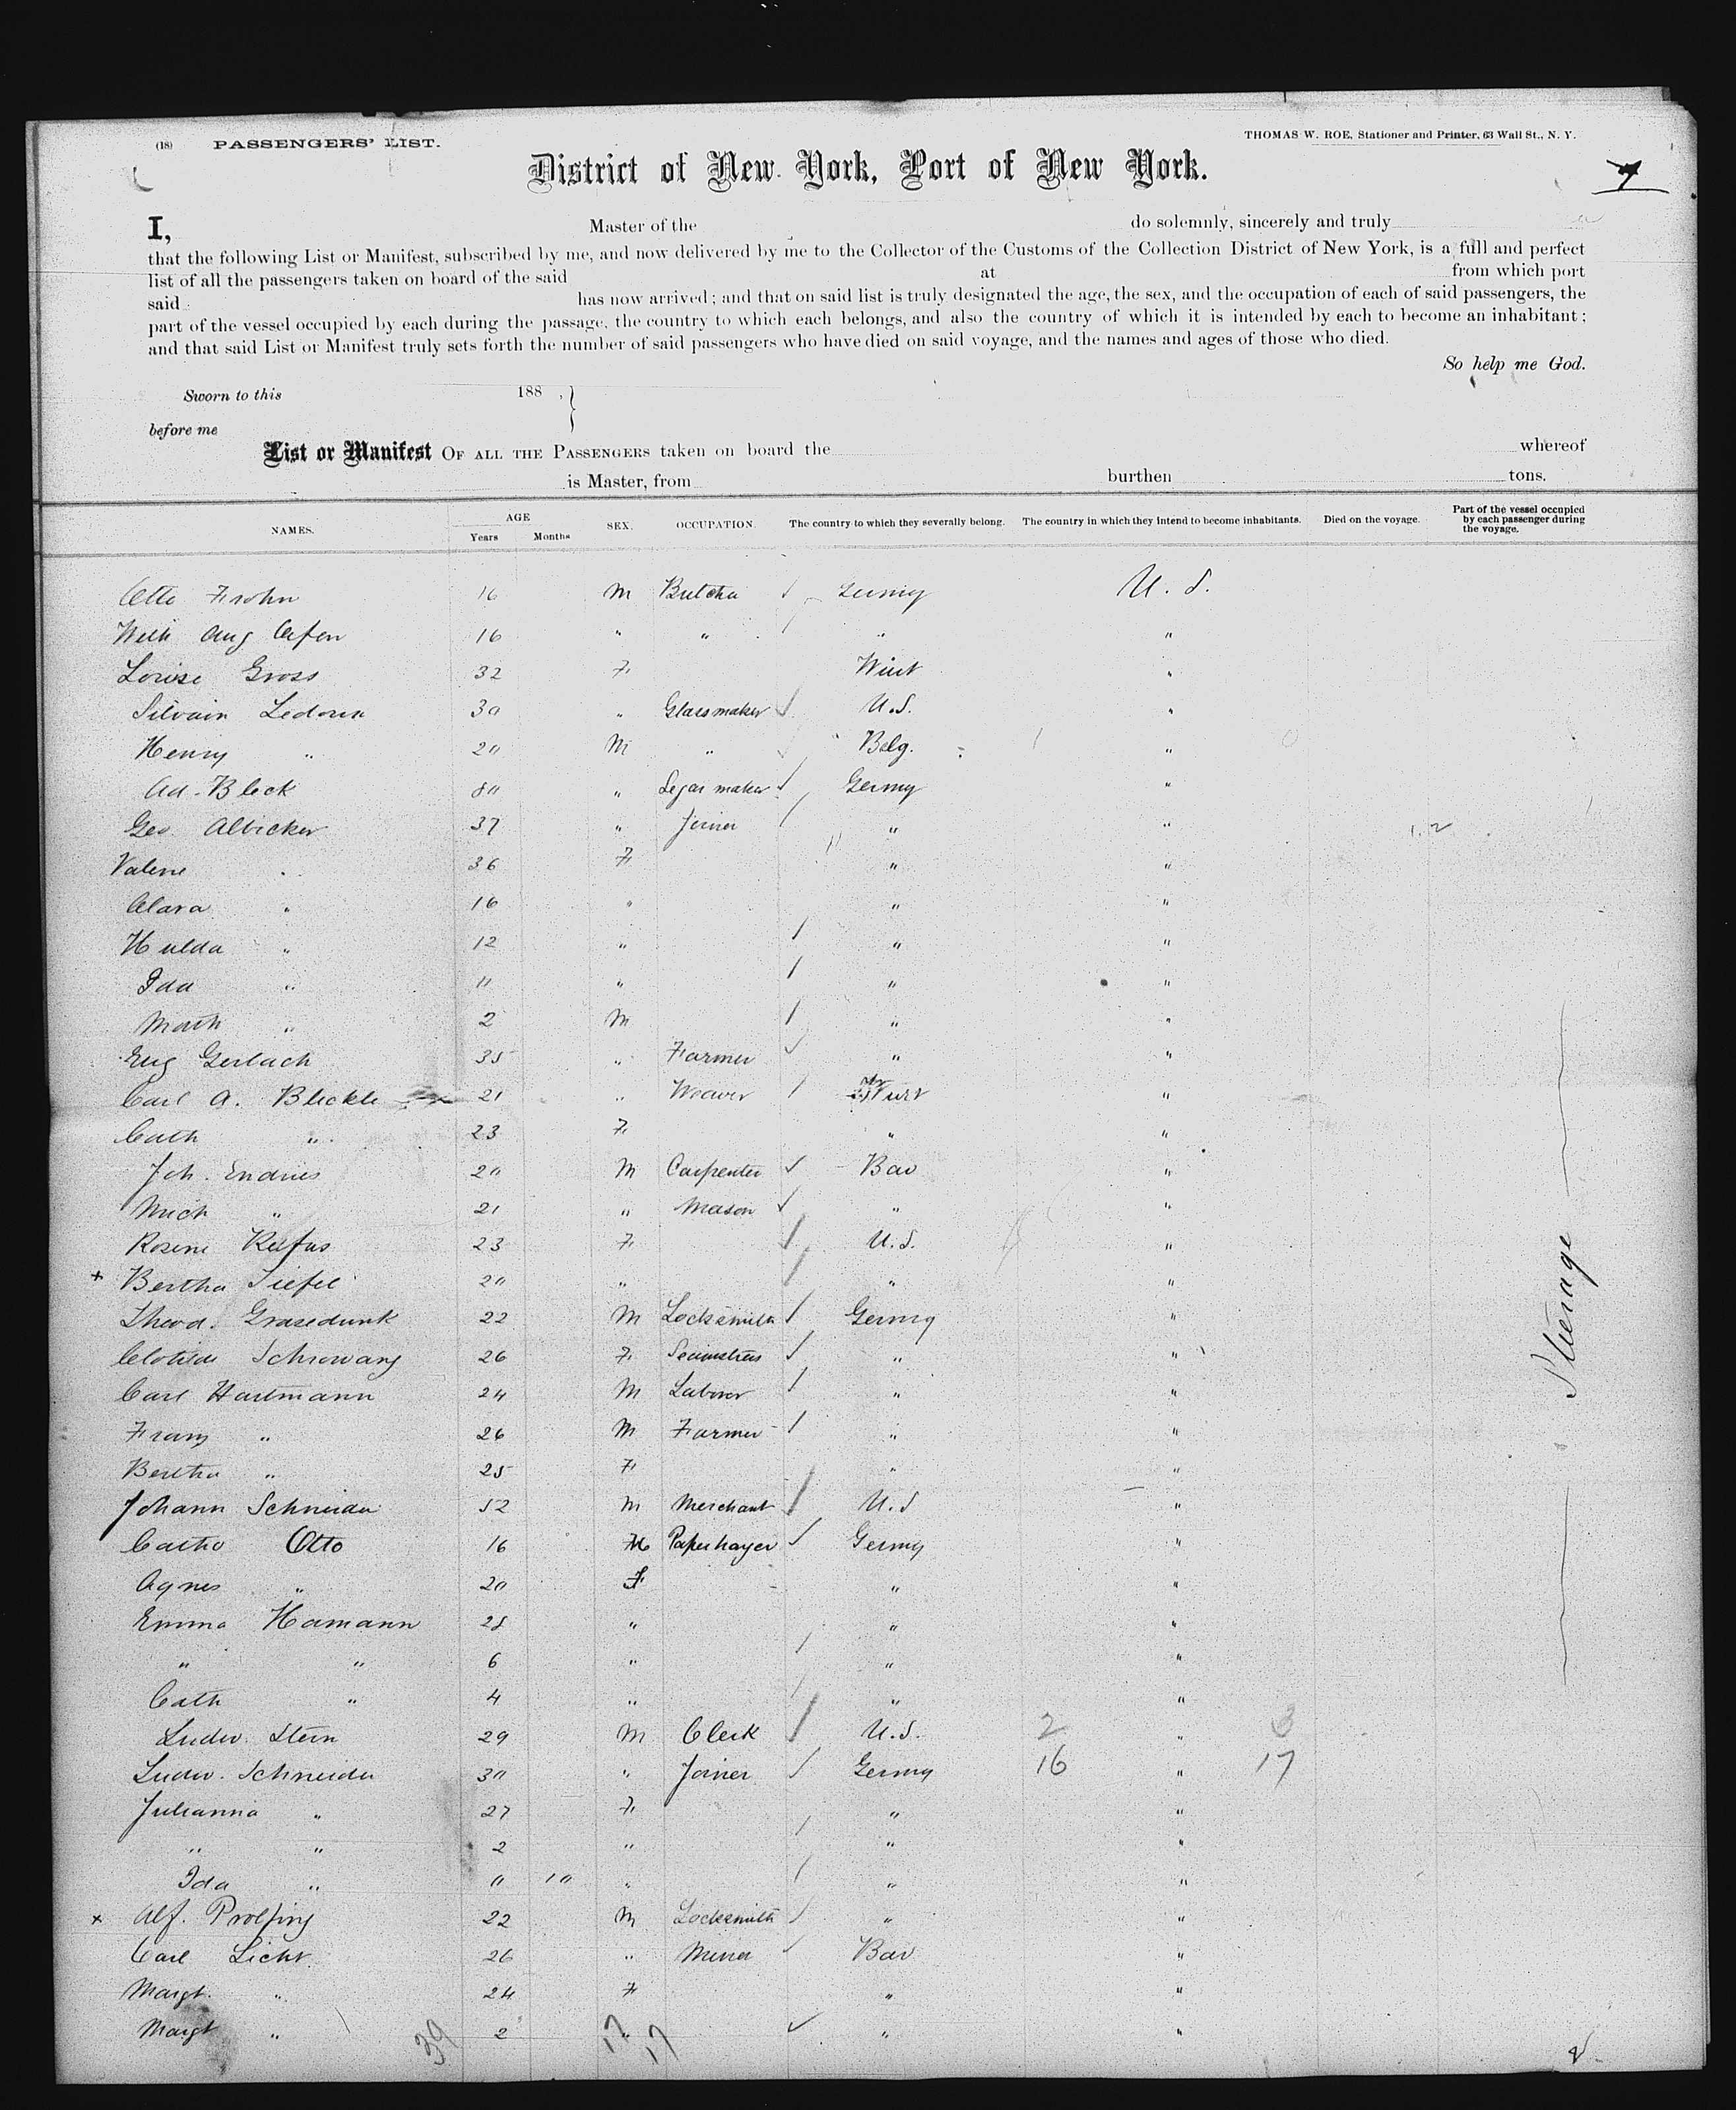 (18) PASSENGERS' LIST.
THOMAS W. ROE, Stationer and Printer, 63 Wall St., N. Y.
District of New York, Port of New York.
I, Master of the do solemnly, sincerely and truly
that the following List or Manifest, subscribed by me, and now delivered by me to the Collector of the Customs of the Collection District of New York, is a full and perfect
list of all the passengers taken on board of the said at from which port
said has now arrived; and that on said list is truly designated the age, the sex, and the occupation of each of said passengers, the
part of the vessel occupied by each during the passage, the country to which each belongs, and also the country of which it is intended by each to become an inhabitant;
and that said List or Manifest truly sets forth the number of said passengers who have died on said voyage, and the names and ages of those who died.
So help me God.
Sworn to this 188 ,
before me
List or Manifest OF ALL THE PASSENGERS taken on board the whereof
is Master, from burthen tons.
NAMES. AGE Years Months SEX. OCCUPATION. The country to which they severally belong. The country in which they intend to become inhabitants. Died on the voyage. Part of the vessel occupied by each passenger during the voyage.
Otto Frohn 16 M Butcher Germy U. S.
Aug 16 " " " "
Louise Gross 32 F "
Silvain Ledoux 30 " Glassmaker U.S. "
Henry " 20 M " Belg. "
Ad. Bleck " Segar maker Germy "
Geo Albicker 37 " Joiner " "
" 36 F " "
Clara " 16 " " "
Hulda " 12 " " "
Ida " 11 " " "
" 2 M " "
Eug Gerlach 35 " Farmer " "
Carl A. Blickle 21 " Weaver Wurt "
Cath " 23 F " "
Joh. Endries 20 M Carpenter Bav "
Mich " 21 " Mason " "
Rosine Rufus 23 F U.S. "
+ Bertha 20 " " "
Theod. Grasedunk 22 M Locksmith Germy "
Clotilde Schrowang 26 F Seamstress " "
Carl Hartmann 24 M Laborer " "
Franz " 26 M Farmer " "
Bertha " 25 F " "
Johann Schneider 52 M Merchant U.S "
Otto 16 Paperhanger Germy "
Agnes " 20 F " "
Emma Hamann 28 " " "
" " 6 " " "
Cath " 4 " " "
Ludw. Stern 29 M Clerk U.S. 2 " 3
Ludw. Schneider 30 " Joiner Germy 16 " 17
Julianna " 27 F " "
" " 2 " " "
Ida " 0 10 " " "
x Alf. 22 M Locksmith " "
Carl Licht 26 " Miner Bav "
Margt. " 24 F " "
Margt " 2 " " "
39 17 17
Steerage